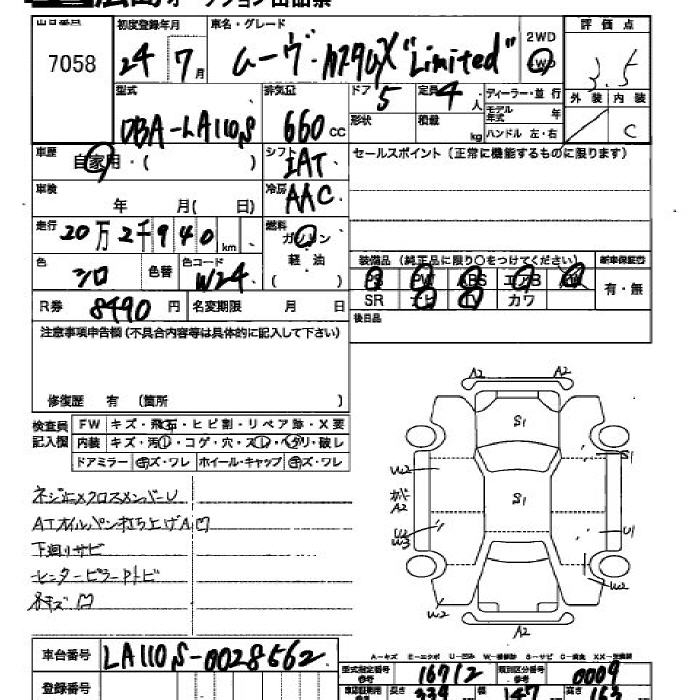 広島オークション出品票
出品番号 初度登録年月 車名・グレード 2WD 評価点
7058 24年 7月 ムーヴ・カスタムX "Limited" 4WD 3.5
型式 排気量 ドア 5 定員 4人 ディーラー・並行 外装 内装
DBA-LA110S 660cc 形状 積載 kg モデル年式 年 C
ハンドル 左・右
車歴 自家用・( ) シフト IAT セールスポイント (正常に機能するものに限ります)
車検 年 月( 日) 冷房 AAC
走行 20万2千940km 燃料 ガソリン
軽・油
( )
色 シロ 色替 色コード W24 装備品 (純正品に限り○をつけてください) 新車保証書
PS PW ABS エアB AW 有・無
R券 8490円 名変期限 月 日 SR ナビ TV カワ
後日品
注意事項申告欄 (不具合内容等は具体的に記入して下さい)
修復歴 有 (箇所 )
検査員記入欄 FW キズ・飛石・ヒビ割・リペア跡・X要
内装 キズ・汚レ・コゲ・穴・スレ・ヘタリ・破レ
ドアミラー キズ・ワレ ホイール・キャップ キズ・ワレ
A2 A2
S1
S1
W2
A2
S1
U2
W3
U1
W2 W2
A2
ATオイルパン打ち上げA凹
下廻りサビ
センターピラーPトビ
車台番号 LA110S-0028562
A-キズ E-エクボ U-凹み W-補修跡 S-サビ C-腐食 XX-交換済
登録番号 型式指定番号 参考 16712 類別区分番号 参考 0009
長さ 339 幅 147 高さ 163